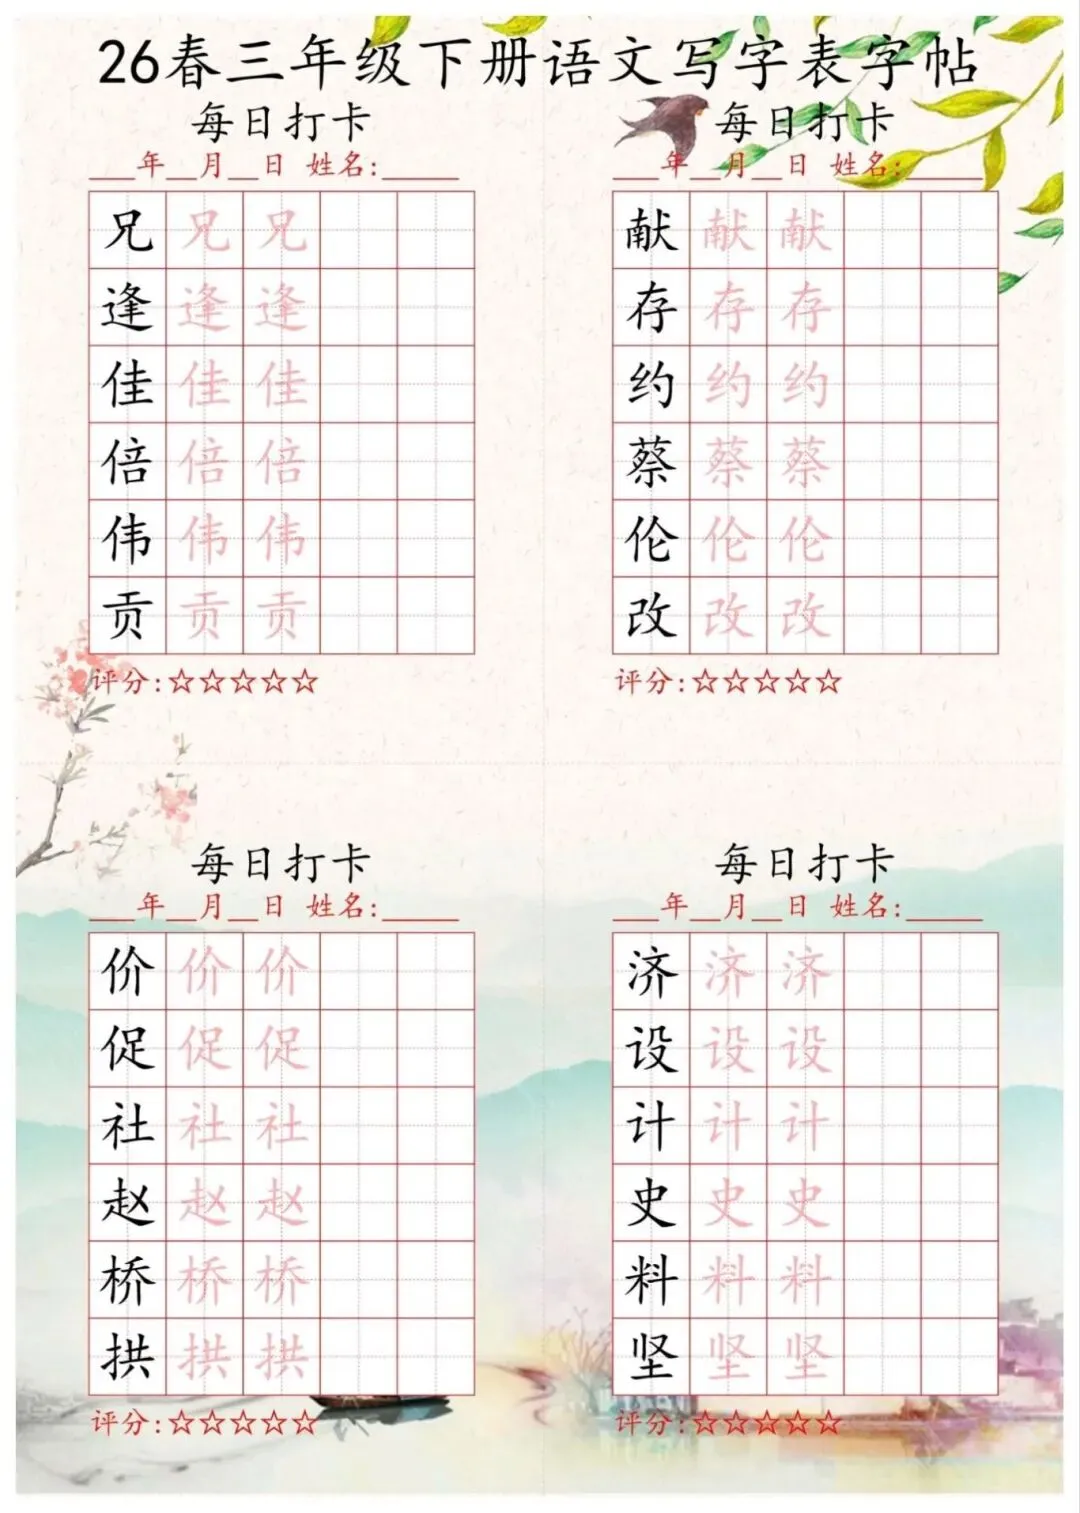 26春三年级下册语文写字表字帖
每日打卡
___年__月__日 姓名:_____
兄 兄 兄
逢 逢 逢
佳 佳 佳
倍 倍 倍
伟 伟 伟
贡 贡 贡
评分:☆☆☆☆☆
每日打卡
___年__月__日 姓名:_____
献 献 献
存 存 存
约 约 约
蔡 蔡 蔡
伦 伦 伦
改 改 改
评分:☆☆☆☆☆
每日打卡
___年__月__日 姓名:_____
价 价 价
促 促 促
社 社 社
赵 赵 赵
桥 桥 桥
拱 拱 拱
评分:☆☆☆☆☆
每日打卡
___年__月__日 姓名:_____
济 济 济
设 设 设
计 计 计
史 史 史
料 料 料
坚 坚 坚
评分:☆☆☆☆☆